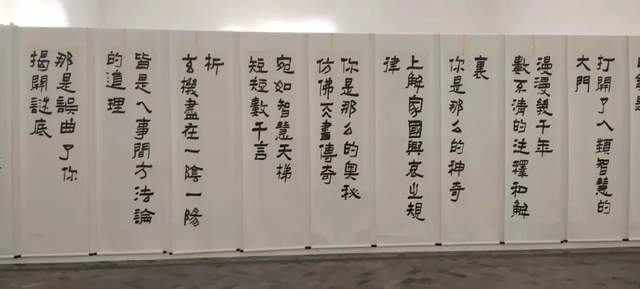 打開了人類智慧的
大門
漫漫幾千年
數不清的注釋和解
裏
你是那么的神奇
上解家國興衰之規
律
你是那么的奧秘
仿佛天書傳奇
宛如智慧天梯
短短數千言
析
玄機盡在一陰一陽
皆是人事間方法論
的道理
那是誤曲了你
揭開謎底